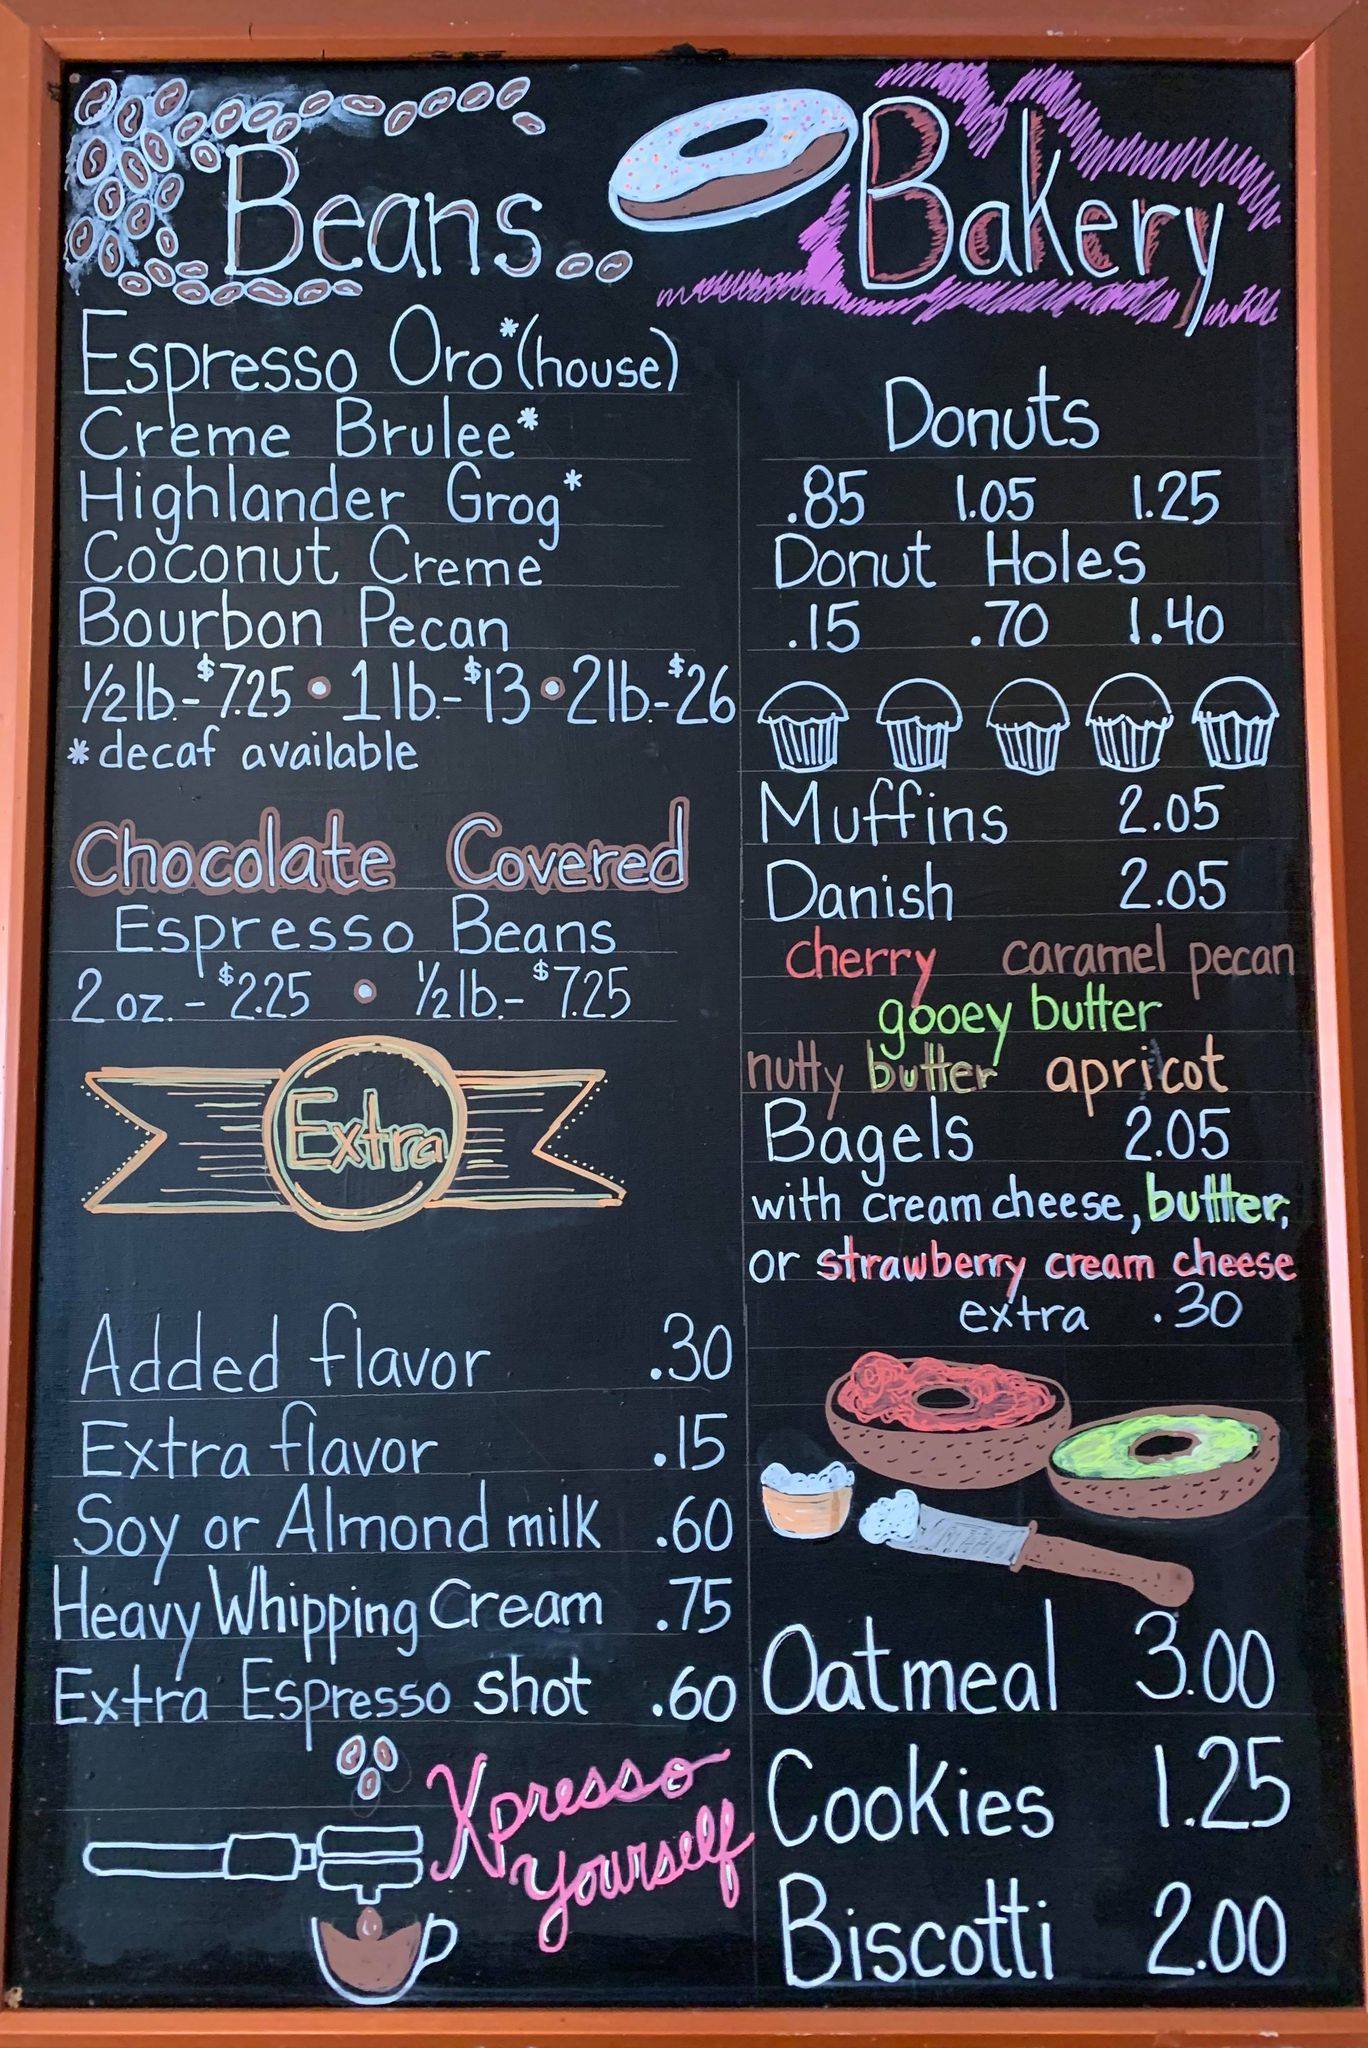 Beans
Espresso Oro* (house)
Creme Brulee*
Highlander Grog*
Coconut Creme
Bourbon Pecan
½ lb.-$7.25 • 1 lb.-$13 • 2 lb.-$26
* decaf available
Chocolate Covered
Espresso Beans
2 oz.-$2.25 • ½ lb.-$7.25
Extra
Added flavor .30
Extra flavor .15
Soy or Almond milk .60
Heavy Whipping Cream .75
Extra Espresso shot .60
Xpresso
Yourself
Bakery
Donuts
.85 1.05 1.25
Donut Holes
.15 .70 1.40
Muffins 2.05
Danish 2.05
cherry caramel pecan
gooey butter
nutty butter apricot
Bagels 2.05
with cream cheese, butter,
or strawberry cream cheese
extra .30
Oatmeal 3.00
Cookies 1.25
Biscotti 2.00